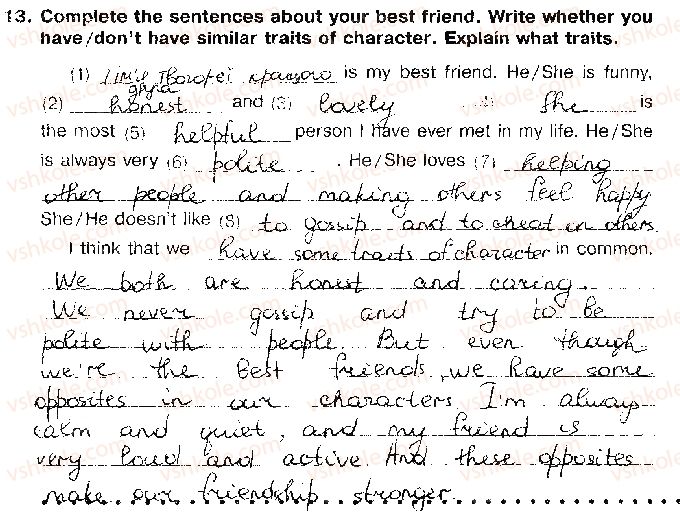 13. Complete the sentences about your best friend. Write whether you
have/don't have similar traits of character. Explain what traits.
(1) Ім'я твоєї кращого is my best friend. He/She is funny,
друга
(2) honest and (3) lovely 4) She is
the most (5) helpful person I have ever met in my life. He/She
is always very (6) polite. He/She loves (7) helping
other people and making others feel happy
She/He doesn't like (8) to gossip and to cheat on others.
I think that we have some traits of character in common.
We both are honest and caring.
We never gossip and try to be
polite with people. But even though
we're the best friends, we have some
opposites in our characters I'm always
calm and quiet, and my friend is
very loud and active. And these opposites
make our friendship stronger